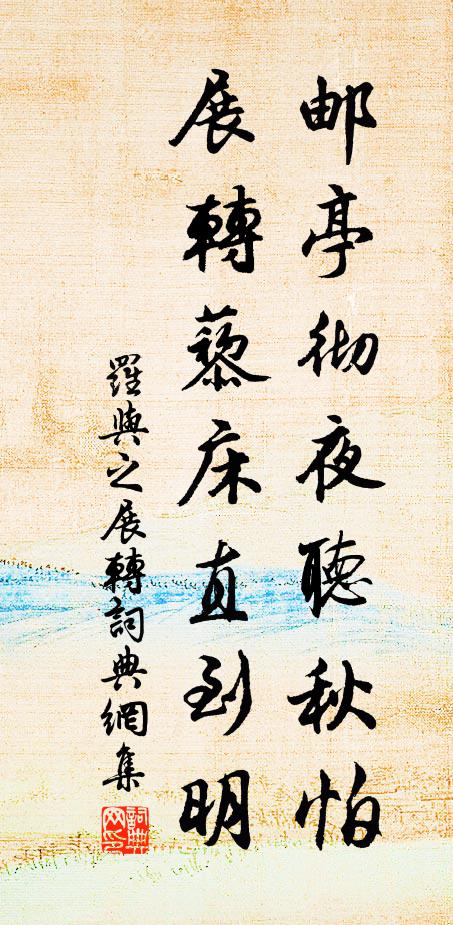 邮亭彻夜聽秋怕
展轉藜床直到明
羅與之展轉詞典網集
詞典网